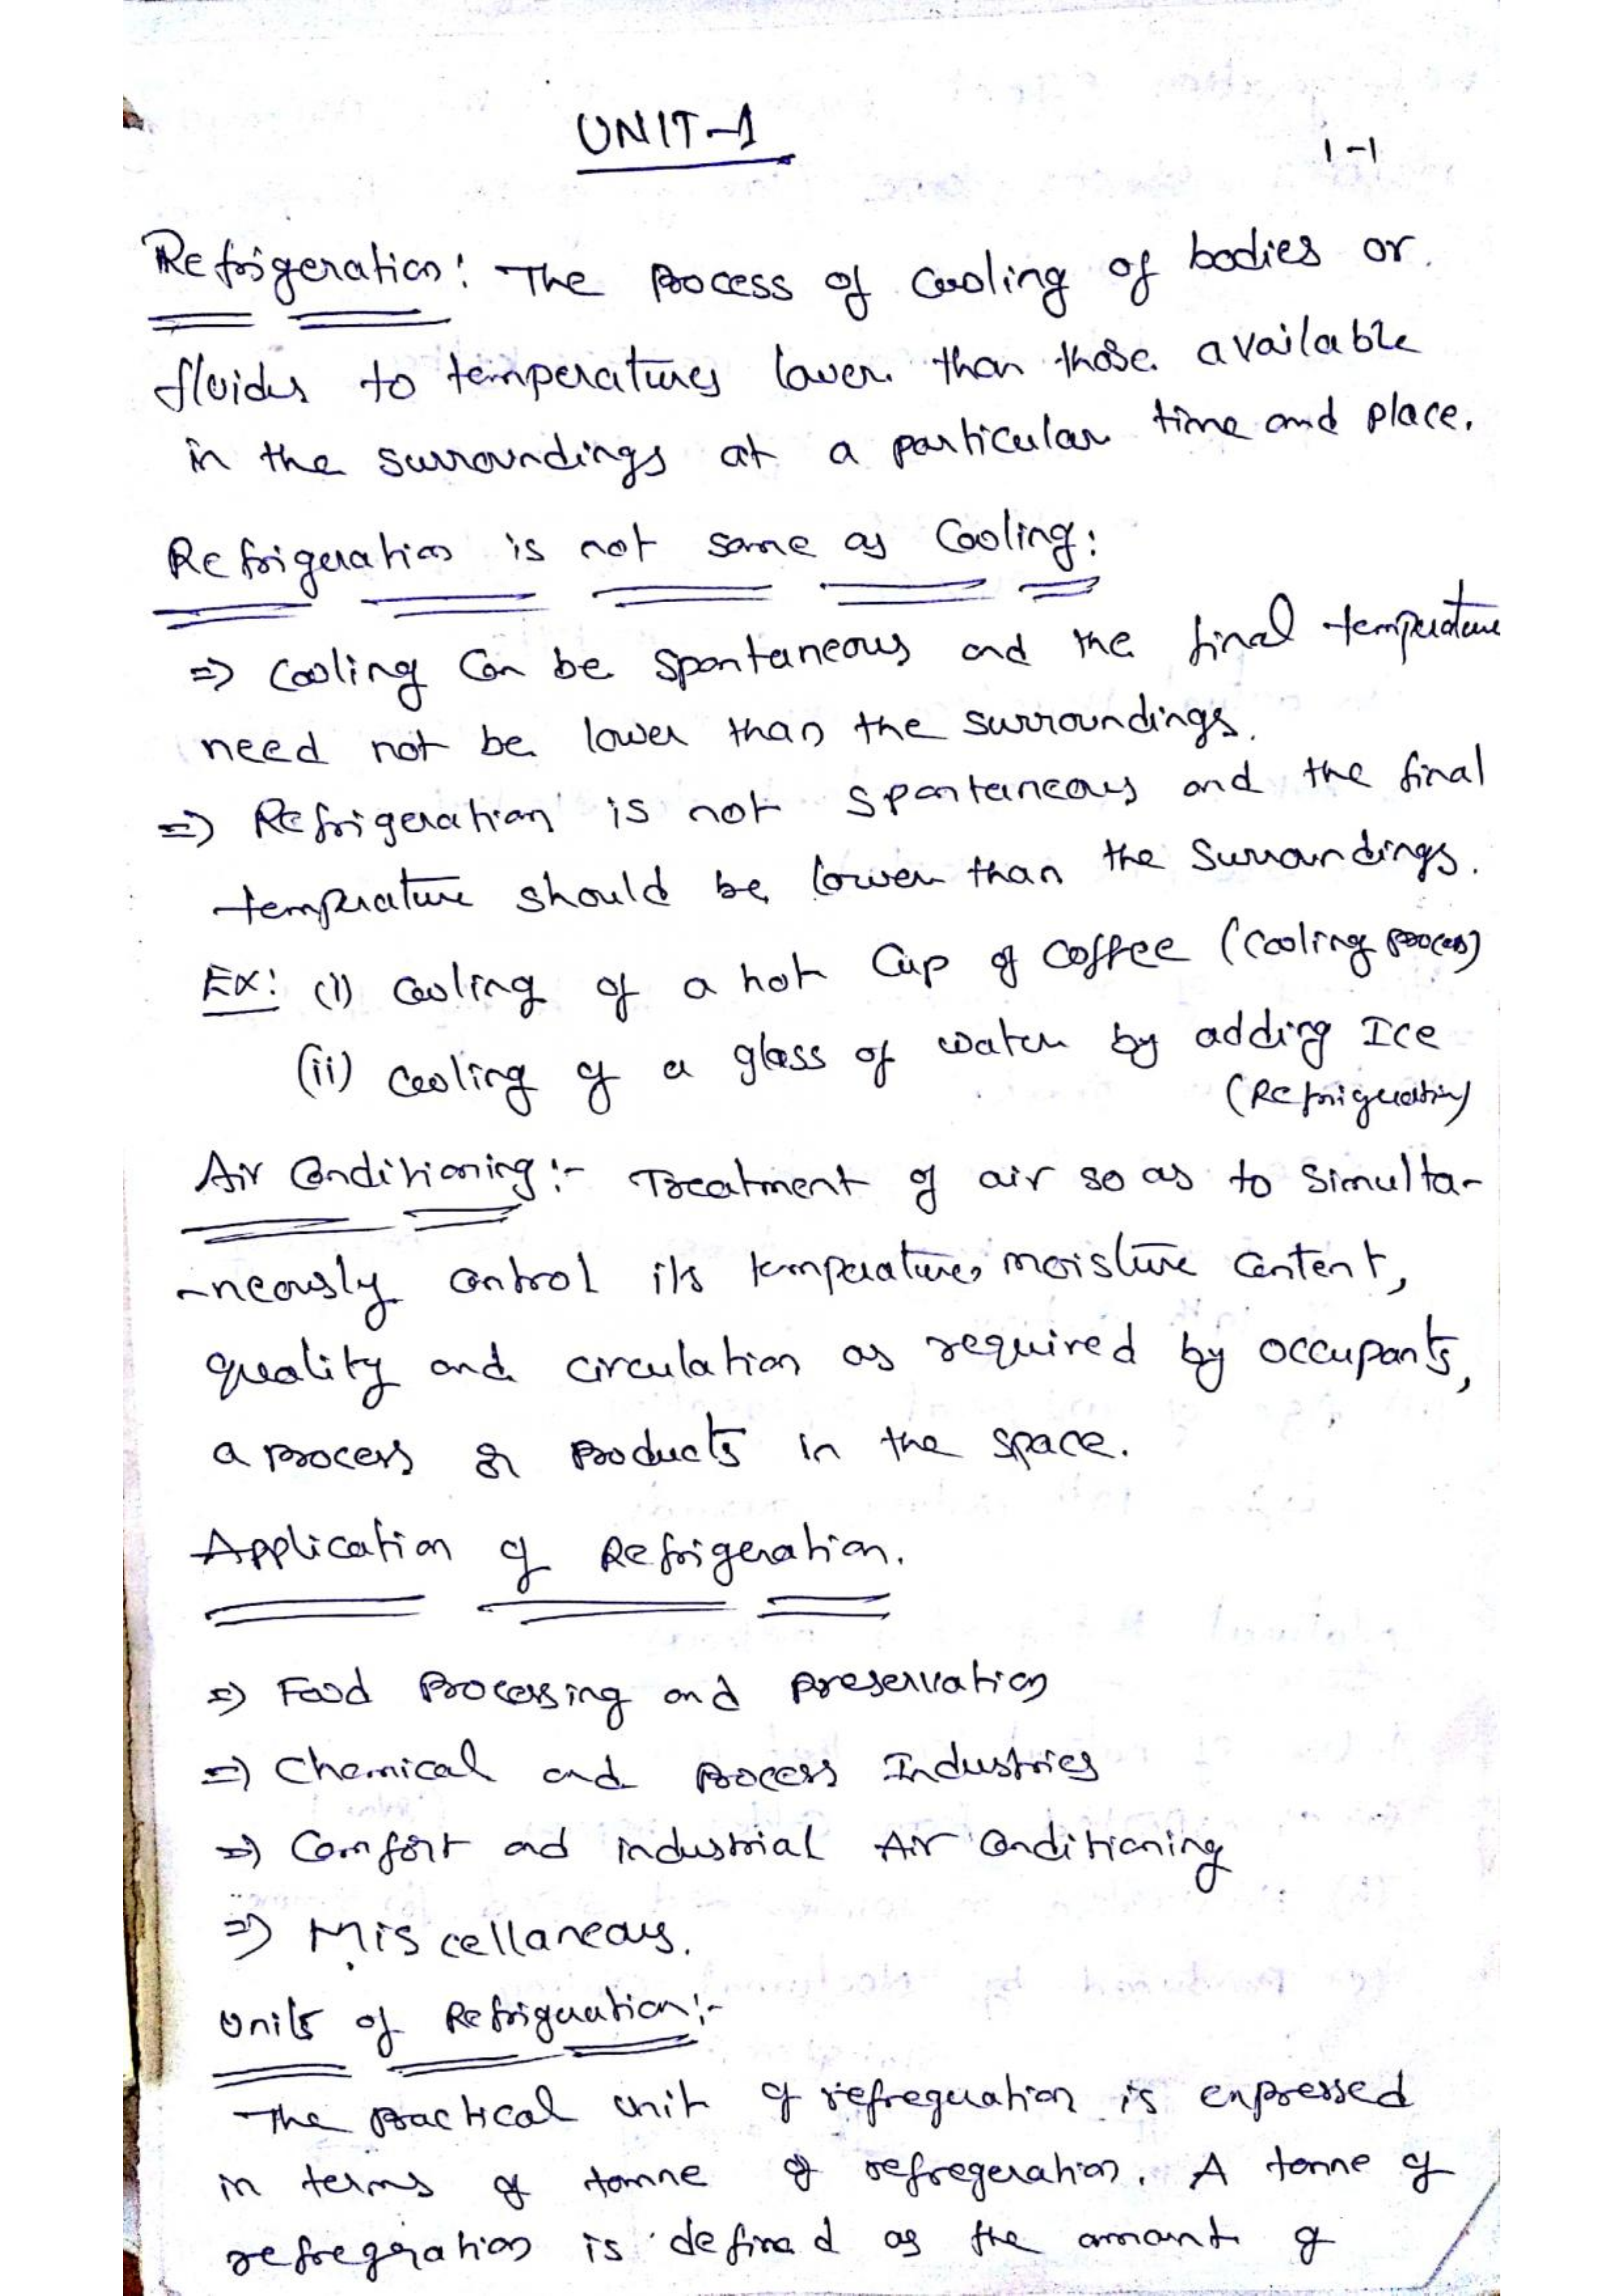 UNIT-1
1-1
Refrigeration: The process of cooling of bodies or
fluids to temperatures lower than those available
in the surroundings at a particular time and place.
Refrigeration is not same as Cooling:
=> Cooling can be spontaneous and the final temperature
need not be lower than the surroundings.
=> Refrigeration is not spontaneous and the final
temperature should be lower than the surroundings.
Ex: (i) cooling of a hot cup of coffee (cooling process)
(ii) cooling of a glass of water by adding Ice
(Refrigeration)
Air Conditioning:- Treatment of air so as to simulta-
-neously control its temperature, moisture content,
quality and circulation as required by occupants,
a process or products in the space.
Application of Refrigeration.
=> Food Processing and preservation
=> Chemical and process Industries
=> Comfort and industrial Air Conditioning
=> Miscellaneous.
Units of Refrigeration:-
The practical unit of refregeration is expressed
in terms of tonne of refregeration. A tonne of
refregeration is defined as the amount of